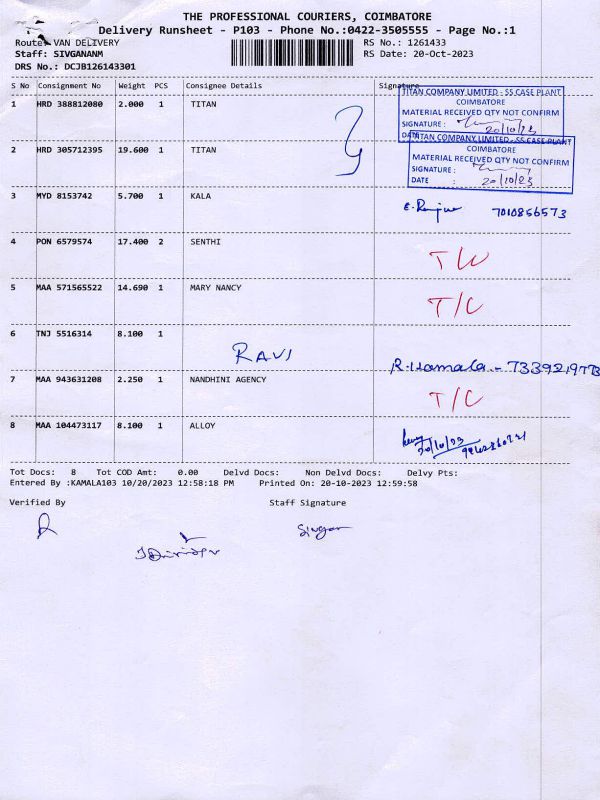 THE PROFESSIONAL COURIERS, COIMBATORE
Delivery Runsheet - P103 - Phone No.:0422-3505555 - Page No.:1
Route: VAN DELIVERY RS No.: 1261433
Staff: SIVGANANM RS Date: 20-Oct-2023
DRS No.: DCJB126143301
S No Consignment No Weight PCS Consignee Details Signature
1 HRD 388812080 2.000 1 TITAN
TITAN COMPANY LIMITED - SS CASE PLANT
COIMBATORE
MATERIAL RECEIVED QTY NOT CONFIRM
SIGNATURE :
DATE 20/10/23
2 HRD 305712395 19.600 1 TITAN
TITAN COMPANY LIMITED - SS CASE PLANT
COIMBATORE
MATERIAL RECEIVED QTY NOT CONFIRM
SIGNATURE :
DATE : 20/10/23
3 MYD 8153742 5.700 1 KALA 7010856573
4 PON 6579574 17.400 2 SENTHI
5 MAA 571565522 14.690 1 MARY NANCY T/C
6 TNJ 5516314 8.100 1
RAVI R.Kamala - 
7 MAA 943631208 2.250 1 NANDHINI AGENCY T/C
8 MAA 104473117 8.100 1 ALLOY 20/10/23
Tot Docs: 8 Tot COD Amt: 0.00 Delvd Docs: Non Delvd Docs: Delvy Pts:
Entered By :KAMALA103 10/20/2023 12:58:18 PM Printed On: 20-10-2023 12:59:58
Verified By Staff Signature